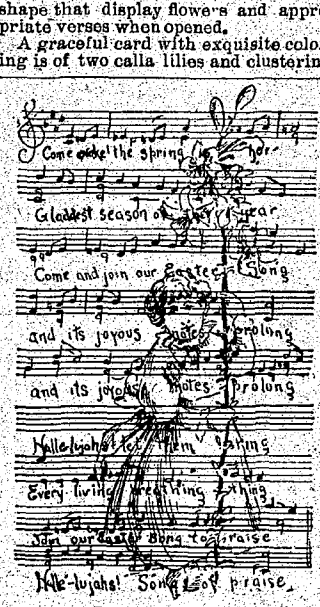 shape that display flowers and appro
priate verses when opened.
A graceful card with exquisite colo
ing is of two calla lilies and clusterin
Come the Spring
Gladdest season of the year
Come and join our Easter Song
and its joyous notes prolong
and its joyous notes prolong
Hallelujahs let them ring
Every living breathing thing
Join our Easter Song to praise
Halle-lujahs! Songs of praise